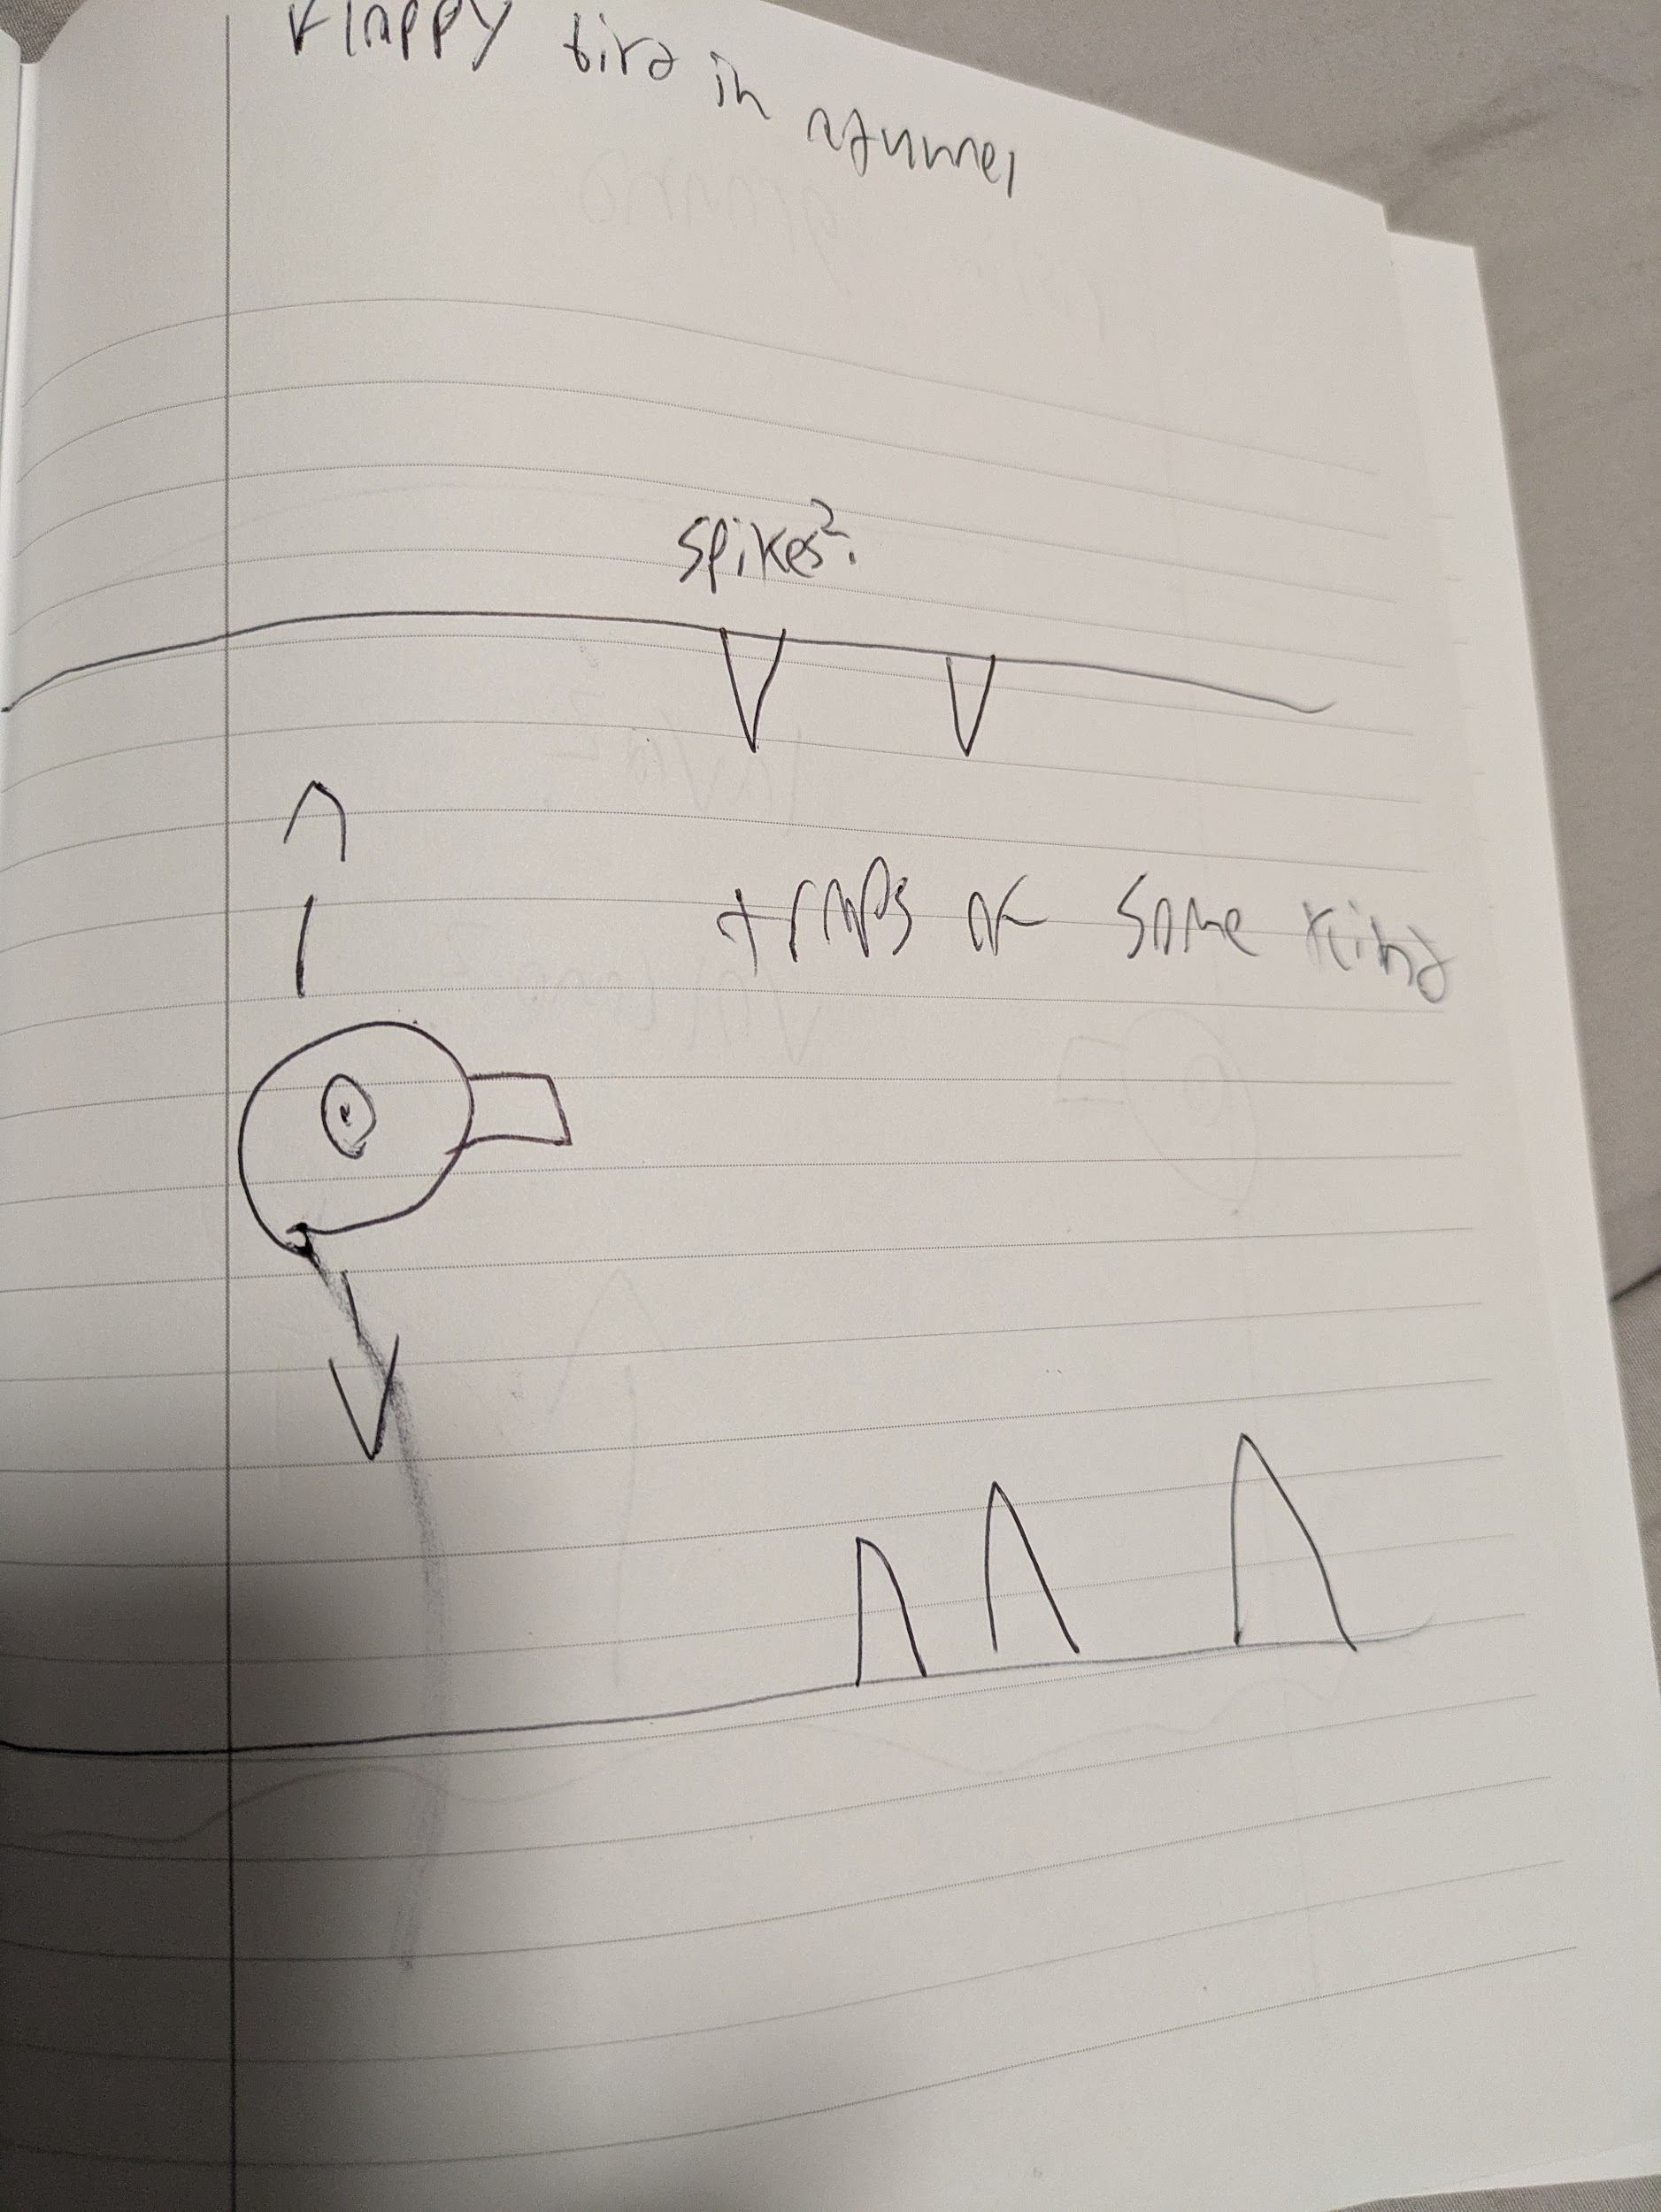 Flappy bird in a tunnel
spikes?
traps of some kind